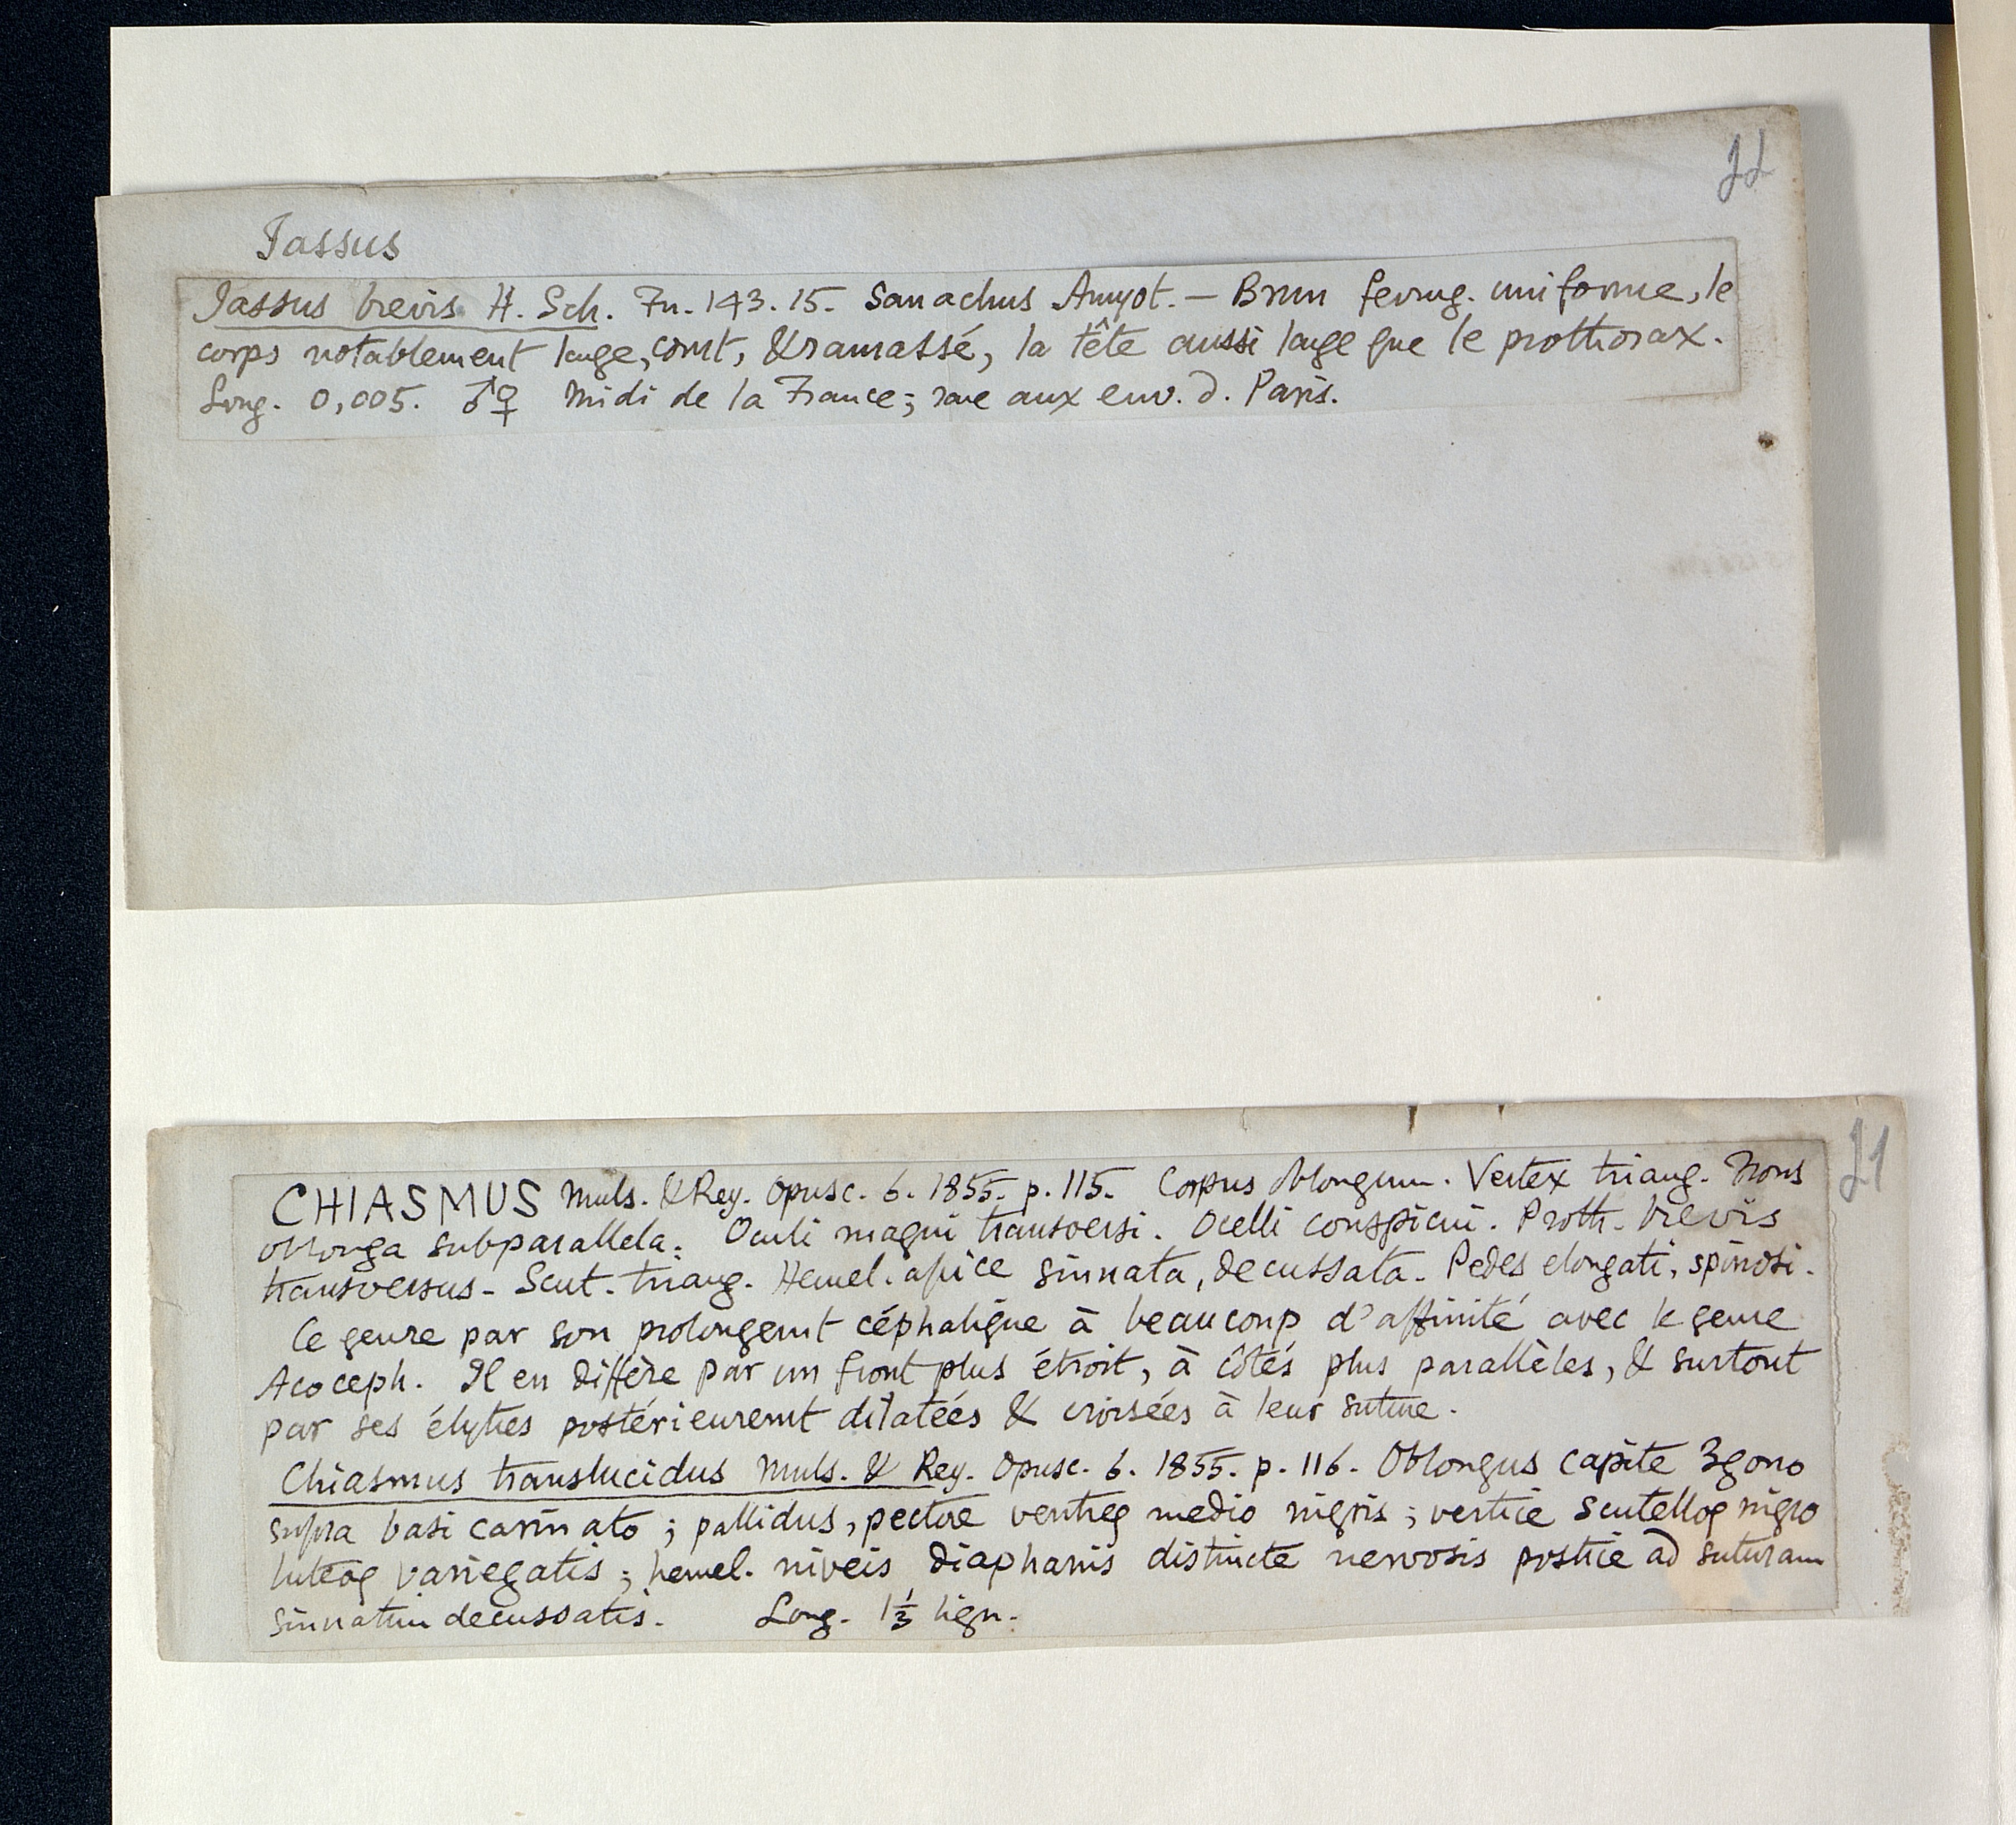 Jassus
Jassus brevis. H. Sch. Fn. 143. 15. Sanachus Amyot. — Brun ferrug. uniforme, le
corps notablement large, court, & ramassé, la tête aussi large que le prothorax.
Long. 0,005. ♂♀ Midi de la France; rare aux env. d. Paris.
21
CHIASMUS Muls. & Rey. Opusc. 6. 1855. p. 115. Corpus oblongum. Vertex triang. Frons
oblonga subparallela. Oculi magni transversi. Ocelli conspicui. Proth. brevis
transversus. Scut. triang. Hemel. apice sinuata, decussata. Pedes elongati, spinosi.
Ce genre par son prolongemt céphalique à beaucoup d'affinité avec le genre
Acoceph. Il en diffère par un front plus étroit, à côtés plus parallèles, & surtout
par ses élytres postérieuremt dilatées & croisées à leur suture.
Chiasmus translucidus Muls. & Rey. Opusc. 6. 1855. p. 116. Oblongus capite 3gono
supra basi carinato; pallidus, pectore ventreq medio nigris; vertice scutelloq nigro
luteoq variegatis; hemel. niveis diaphanis distincte nervosis postice ad suturam
sinuatim decussatis. Long. 1 1/3 lign.